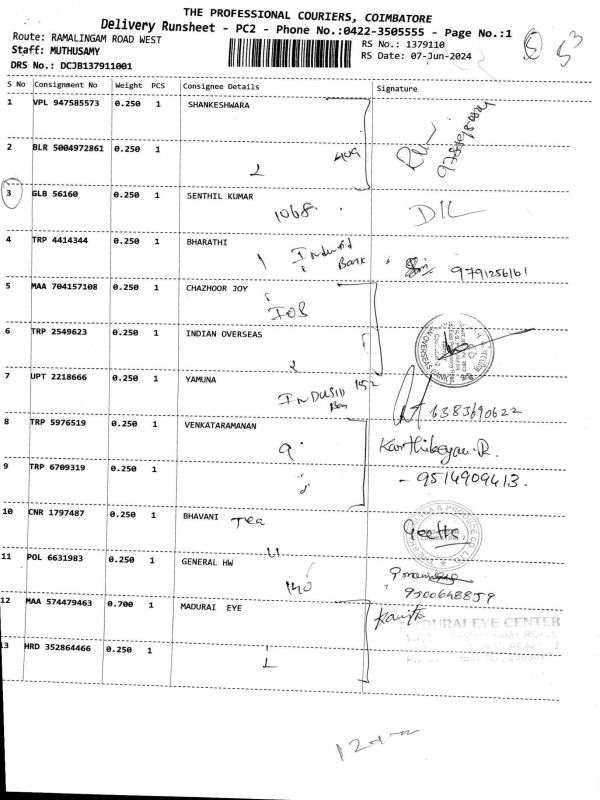 THE PROFESSIONAL COURIERS, COIMBATORE
Delivery Runsheet - PC2 - Phone No.:0422-3505555 - Page No.:1
Route: RAMALINGAM ROAD WEST
RS No.: 1379110
Staff: MUTHUSAMY
RS Date: 07-Jun-2024
DRS No.: DCJB137911001
S No Consignment No Weight PCS Consignee Details Signature
1 VPL 947585573 0.250 1 SHANKESHWARA
2 BLR 5004972861 0.250 1
409
3 GLB 56160 0.250 1 SENTHIL KUMAR
1068
4 TRP 4414344 0.250 1 BHARATHI
Bank
9791256161
5 MAA 704157108 0.250 1 CHAZHOOR JOY
IOB
6 TRP 2549623 0.250 1 INDIAN OVERSEAS
7 UPT 2218666 0.250 1 YAMUNA
152
6383690622
8 TRP 5976519 0.250 1 VENKATARAMANAN
Karthikeyan.R.
9 TRP 6709319 0.250 1
- 9514909413.
10 CNR 1797487 0.250 1 BHAVANI Tea
Geetha
11 POL 6631983 0.250 1 GENERAL HW
140
9500648859
12 MAA 574479463 0.700 1 MADURAI EYE
MADURAI EYE CENTER
13 HRD 352864466 0.250 1